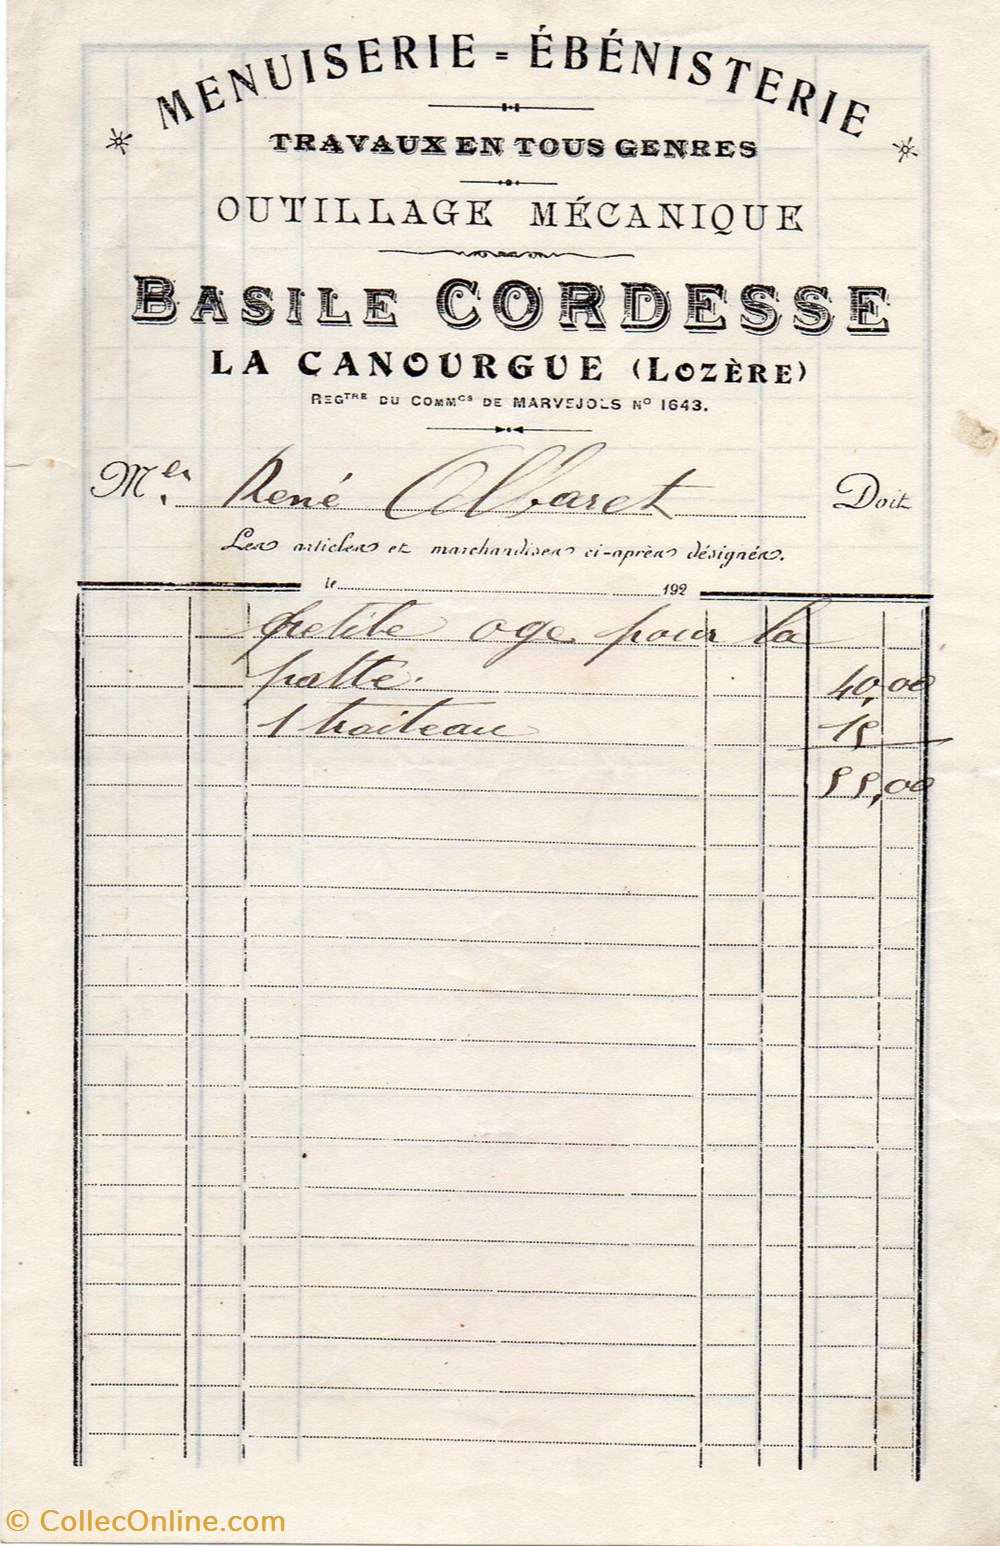 MENUISERIE = ÉBÉNISTERIE
TRAVAUX EN TOUS GENRES
OUTILLAGE MÉCANIQUE
BASILE CORDESSE
LA CANOURGUE (LOZÈRE)
REGTRE DU COMMCS DE MARVEJOLS No 1643.
M René Albaret Doit
Les articles et marchandises ci-après désignés.
le 192
petite oge pour la
patte. 40,00
1 traiteau 15
55,00
© CollecOnline.com